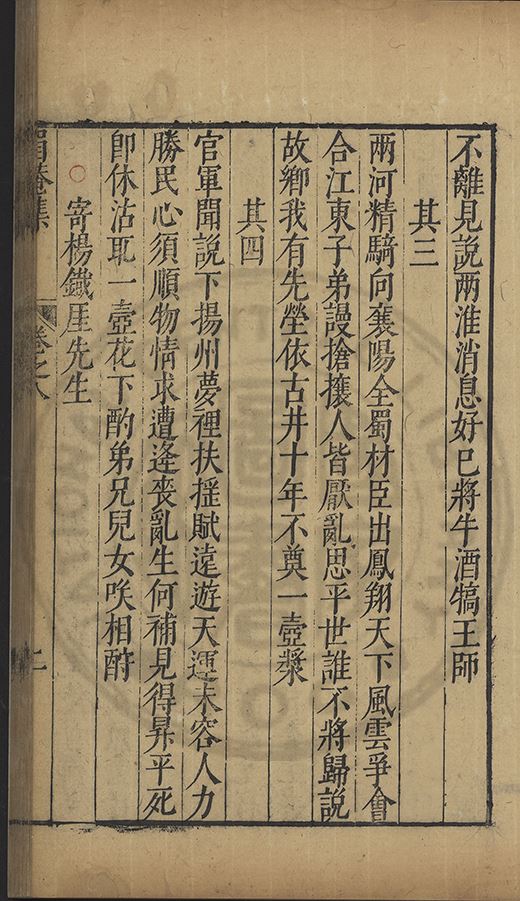 不離見説两淮消息好巳將牛酒犒王師
其三
兩河精騎向襄陽全蜀材臣出鳳翔天下風雲爭會
合江東子弟謾搶攘人皆厭亂思平世誰不將歸説
故鄉我有先塋依古井十年不奠一壺漿
其四
官軍聞説下揚州夢裡扶摇賦遠遊天運未容人力
勝民心須順物情求遭逢喪亂生何補見得昇平死
即休沽取一壺花下酌弟兄兒女咲相酧
○寄楊鐵厓先生
菴集
卷之八